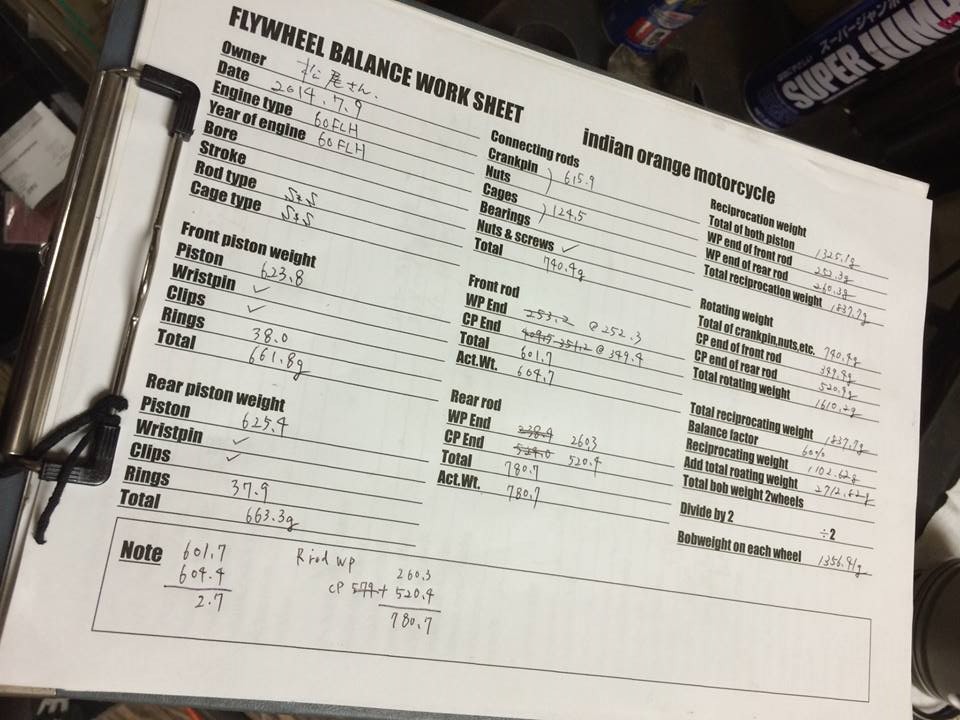 スーパージャンボ
SUPER JUMB
FLYWHEEL BALANCE WORK SHEET
indian orange motorcycle
Owner 松尾さん.
Date 2014.7.9
Engine type 60FLH
Year of engine 60FLH
Bore
Stroke
Rod type S&S
Cage type S&S
Front piston weight
Piston 623.8
Wristpin ✓
Clips ✓
Rings 38.0
Total 661.8g
Rear piston weight
Piston 625.4
Wristpin ✓
Clips ✓
Rings 37.9
Total 663.3g
Connecting rods
Crankpin
Nuts ) 615.9
Cages
Bearings ) 124.5
Nuts & screws ✓
Total 740.4g
Front rod
WP End 253.2 @ 252.3
CP End 351.2 @ 349.4
Total 601.7
Act.Wt. 604.7
Rear rod
WP End 238.9 260.3
CP End 524.0 520.4
Total 780.7
Act.Wt. 780.7
Reciprocation weight
Total of both piston 1325.1g
WP end of front rod 252.3g
WP end of rear rod 260.3g
Total reciprocation weight 1837.7g
Rotating weight
Total of crankpin,nuts,etc. 740.4g
CP end of front rod 349.4g
CP end of rear rod 520.4g
Total rotating weight 1610.2g
Total reciprocating weight 1837.7g
Balance factor 60%
Reciprocating weight 1102.62g
Add total roating weight
Total bob weight 2wheels 2712.82g
Divide by 2 ÷2
Bobweight on each wheel 1356.41g
Note
601.7
604.4
2.7
R rod WP 260.3
CP 579.1 + 520.4
780.7